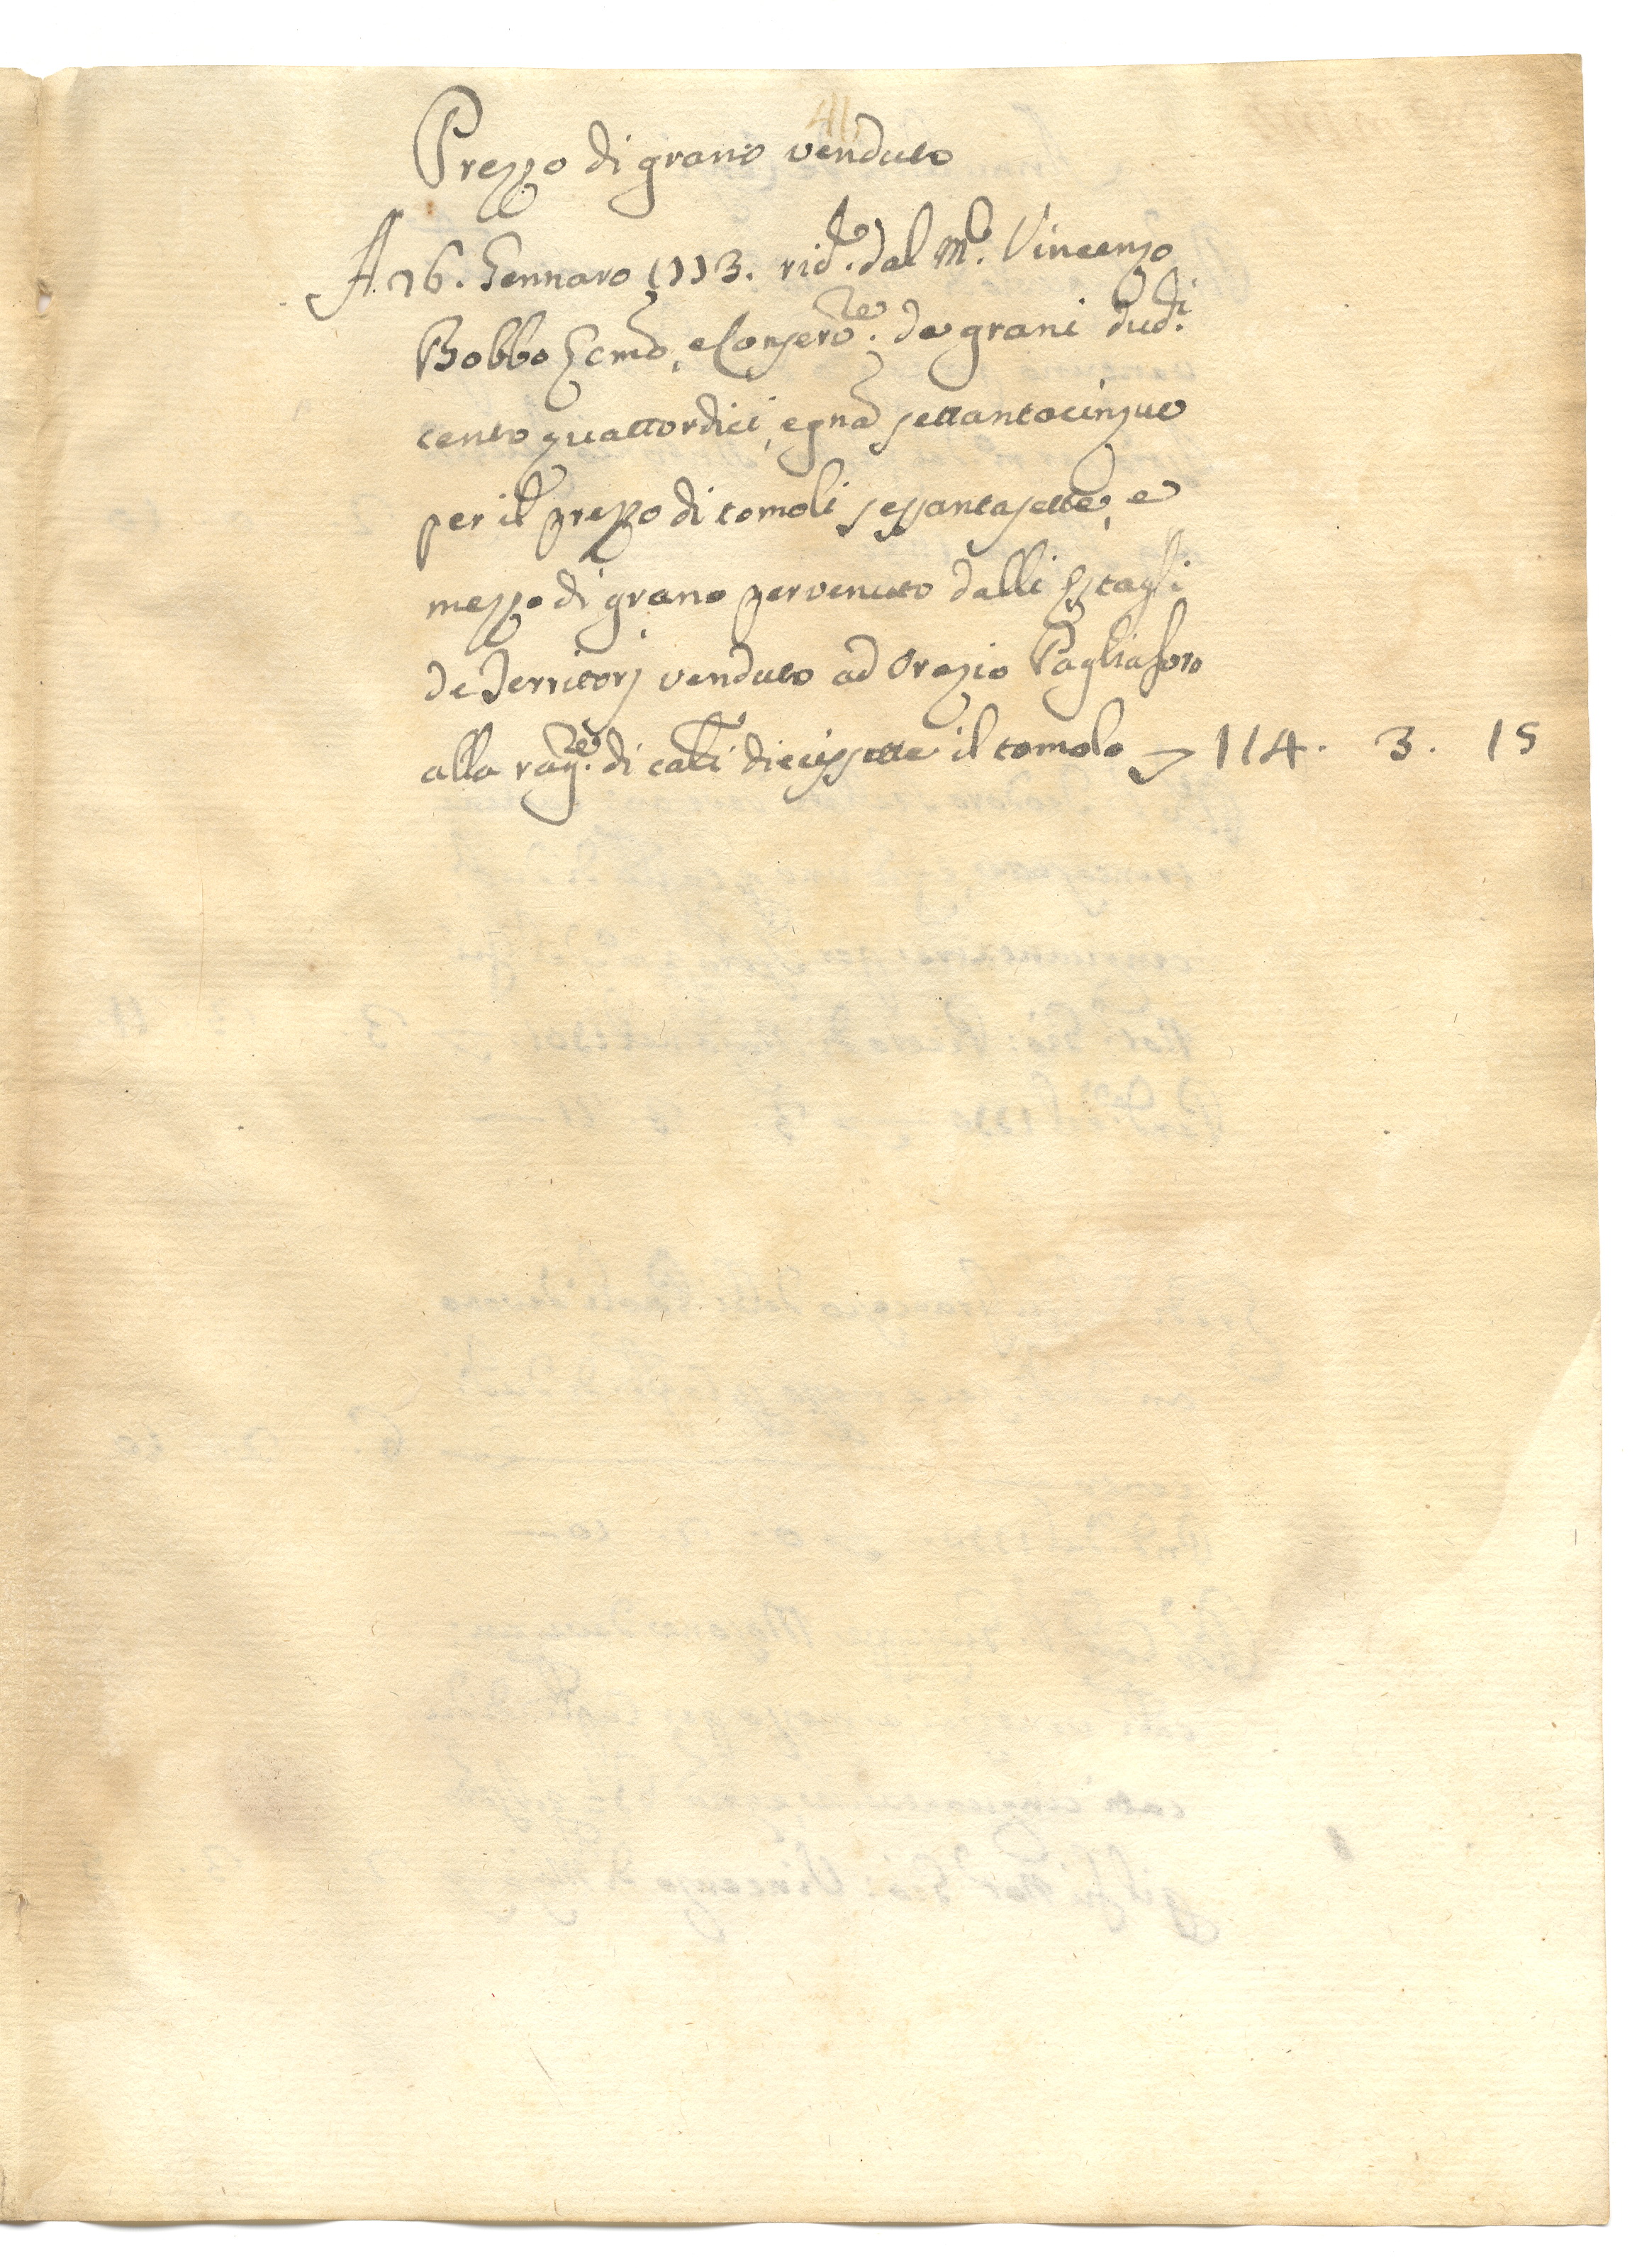 41
Prezzo di grano venduto
A 26. Gennaro 1773. rid.to dal M.co Vincenzo
Bobbo Ecmo, e Conserv.re de grani dud.i
cento quattordici, e gna settantacinque
per il prezzo di tomoli sessantasette, e
mezzo di grano pervenuto dalli Estagli
de Territorj venduto ad Orazio Pagliaforo
alla rag.ne di carli diecissette il tomolo 114. 3. 15